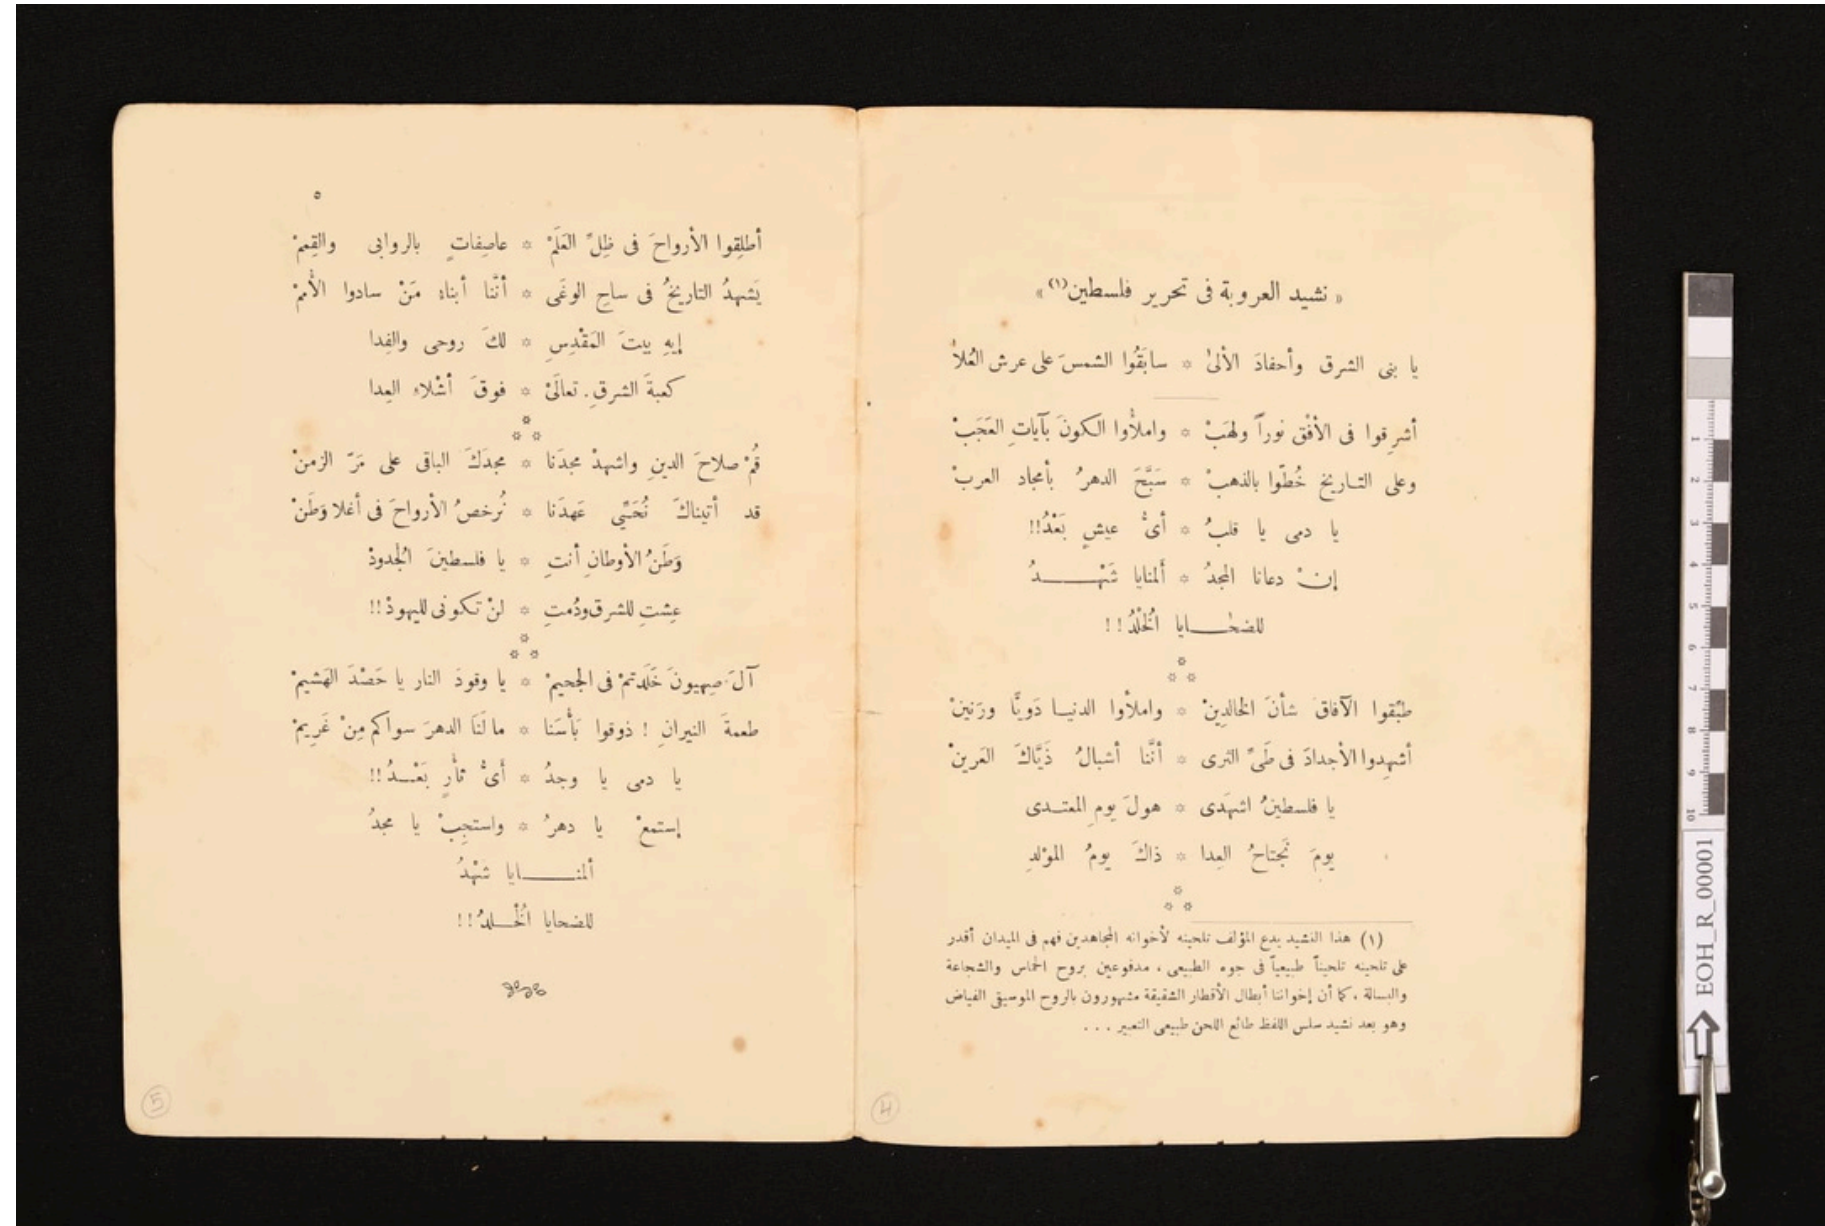 « نشيد العروبة فى تحرير فلسطين(١) »
يا بنى الشرق وأحفادَ الألىٰ * سابَقُوا الشمسَ على عرش العُلا
أشرِقوا فى الأفْق نوراً ولهَبْ * واملأوا الكونَ بآياتِ العَجَبْ
وعلى التـاريخ خُطّوا بالذهبْ * سَبَّحَ الدهرُ بأمجاد العربْ
يا دمى يا قلبُ * أىُّ عيشٍ بَعْدُ!!
إنْ دعانا المجدُ * ألمنايا شَهْـــــدُ
للضحـــايا الُخلْدُ!!
*
* *
طبِّقوا الآفاقَ شأنَ الخالدِينْ * واملأوا الدنيـا دَويًّا ورَنينْ
أشهِدوا الأجدادَ فى طَىِّ الثرى * أنَّنا أشبالُ ذَيَّاكَ العَرينْ
يا فلسطينُ اشهَدى * هولَ يومِ المعتـدى
يومَ نَجتاحُ العِدا * ذاكَ يومُ المولدِ
*
* *
(١) هذا النشيد يدع المؤلف تلحينه لأخوانه المجاهدين فهم فى الميدان أقدر
على تلحينه تلحيناً طبيعياً فى جوه الطبيعى ، مدفوعين بروح الحماس والشجاعة
والبسالة ، كما أن إخواننا أبطال الأقطار الشقيقة مشهورون بالروح الموسيقى الفياض
وهو بعد نشيد سلس اللفظ طائع اللحن طبيعى التعبير . . .
4
٥
أطلِقوا الأرواحَ فى ظِلِّ العَلَمْ * عاصِفاتٍ بالروابى والقِممْ
يَشهدُ التاريخُ فى ساحِ الوغَى * أنَّنا أبناءُ مَنْ سادوا الأُممْ
إيهِ بيتَ المَقْدِسِ * لكَ روحى والفِدا
كعبةَ الشرقِ . تعالَىْ * فوقَ أشْلاءِ العِدا
*
* *
قُمْ صلاحَ الدينِ واشهدْ مجدَنا * مجدَكَ الباقى على مَرّ الزمنْ
قد أتيناكَ نُحَيِّي عَهدَنا * نُرخصُ الأرواحَ فى أغلا وَطَنْ
وَطَنُ الأوطانِ أنتِ * يا فلسطينَ الجُدودْ
عِشتِ للشرق ودُمتِ * لنْ تكونى لليهودْ!!
*
* *
آلَ صِهيونَ خَلَدتمْ فى الجحيمْ * يا وقودَ النار يا حَصْدَ الهَشيمْ
طعمةَ النيرانِ ! ذوقوا بَأْسَنا * ما لَنَا الدهرَ سواكم مِنْ غَرِيمْ
يا دمى يا وجدُ * أىُّ ثأرٍ بَعْــدُ!!
إستمعْ يا دهرُ * واستجِبْ يا مجدُ
ألمنـــــايا شَهْدُ
للضحايا الُخلْــدُ!!
5
1
2
3
4
5
6
7
8
9
10
EOH_R_00001